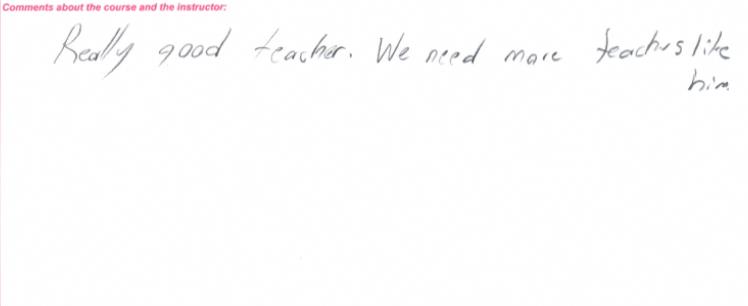 Comments about the course and the instructor:
Really good teacher. We need more teachers like
him